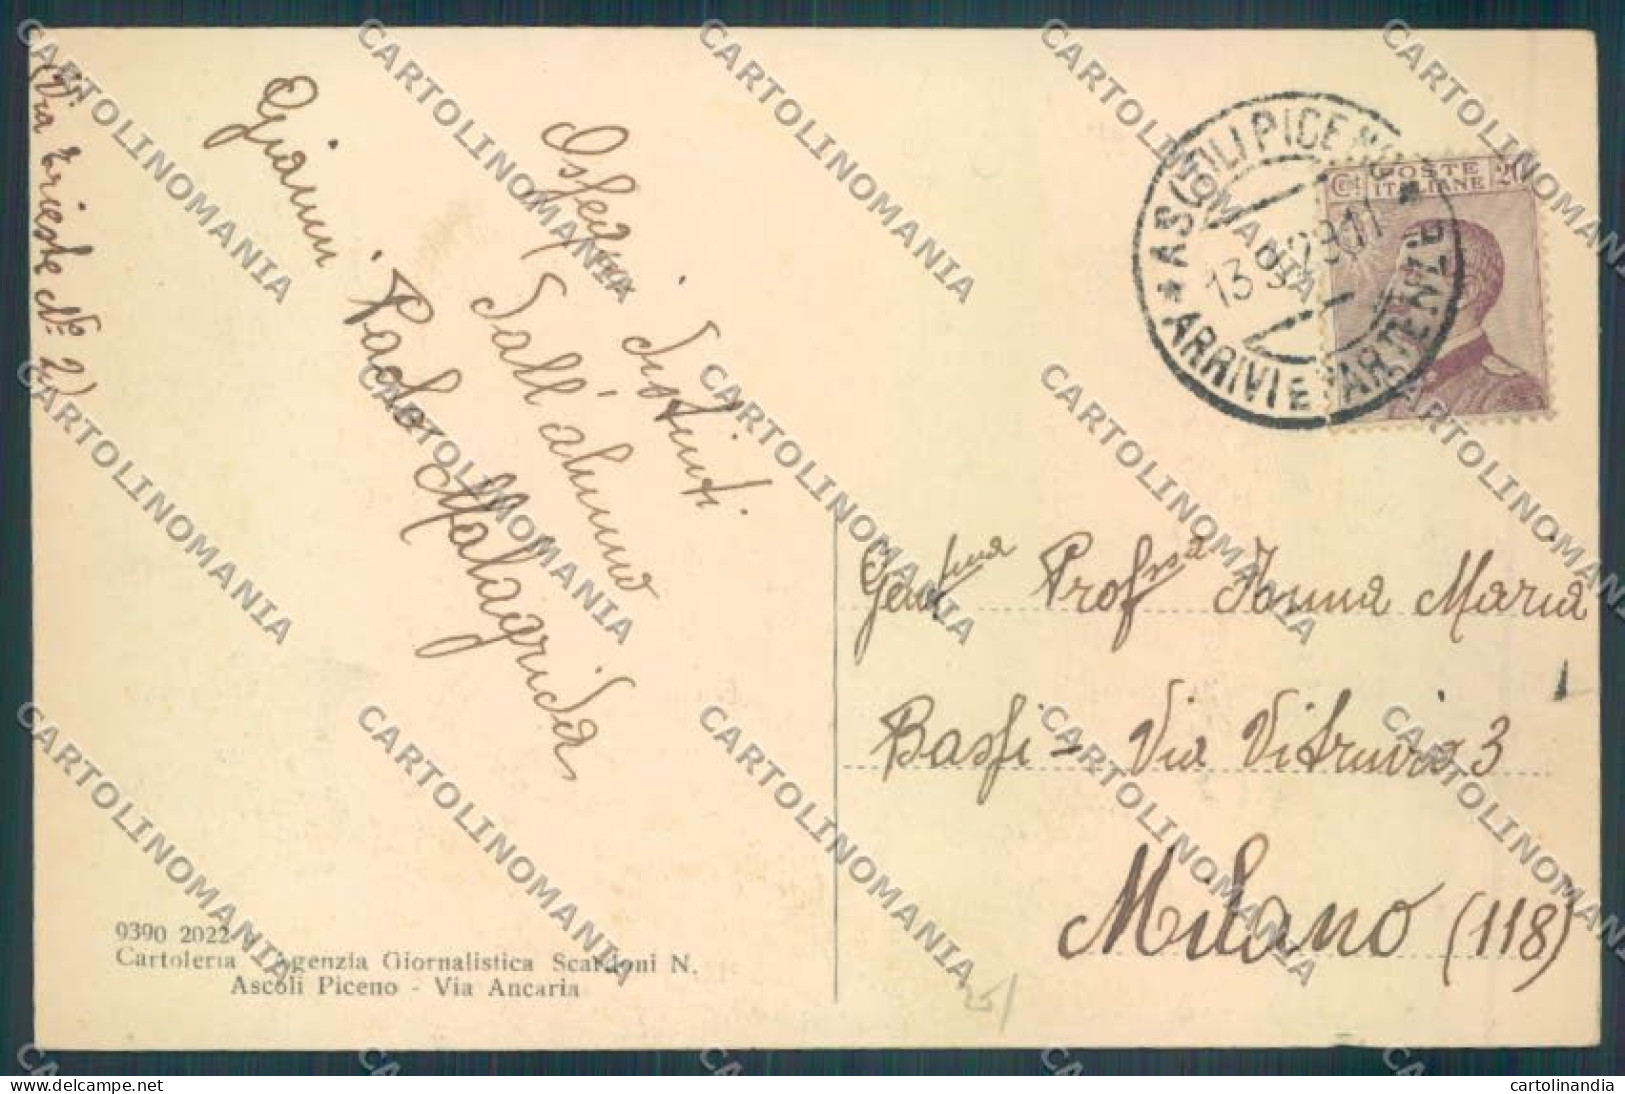 (Via Trieste N° 2)
Ossequi distinti
Dall'alunno
Paolo Malagrida
Gianni
ASCOLI PICENO
13 9 29 11
ARRIVI E PARTENZE
Cent POSTE 20
ITALIANE
Gent.ma Prof.ssa Ionna Maria
Bassi - Via Vitruvio 3
Milano (118)
9390 2022
Cartoleria Agenzia Giornalistica Scardoni N.
Ascoli Piceno - Via Ancaria
CARTOLINOMANIA
Delcampe.net
cartolinandia